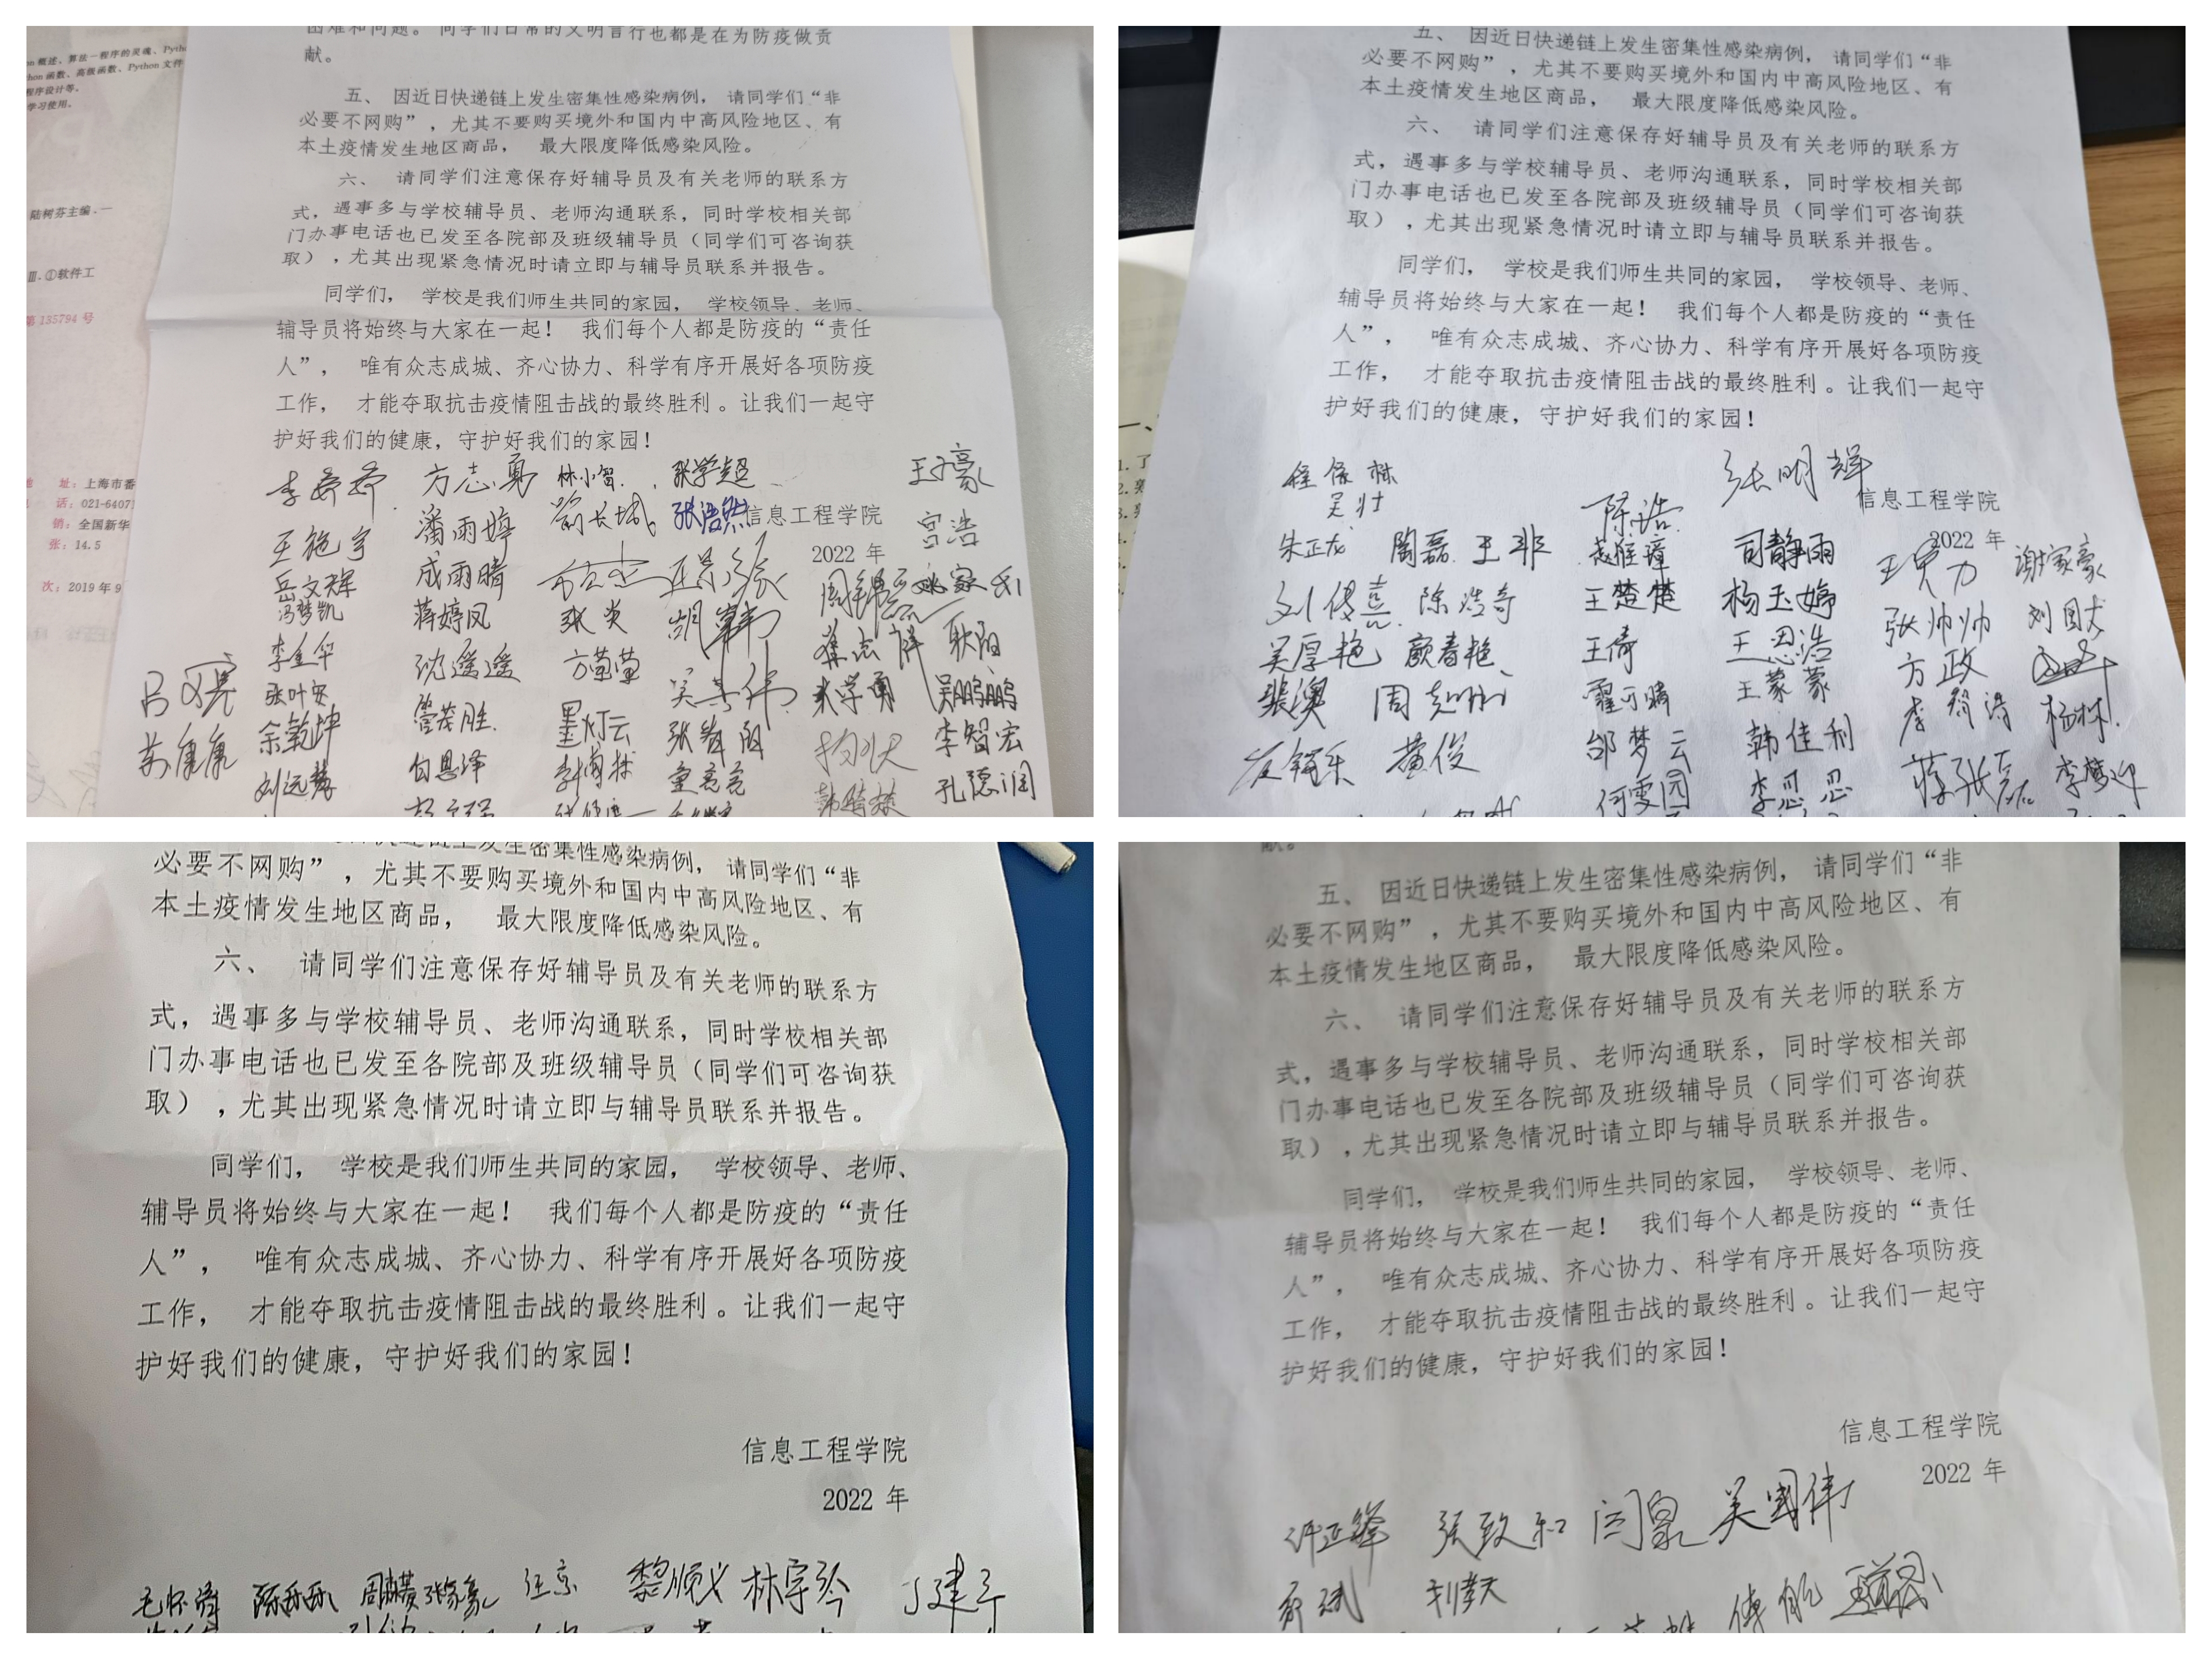 困难和问题。 同学们日常的文明言行也都是在为防疫做贡
献。
五、 因近日快递链上发生密集性感染病例, 请同学们“非
必要不网购”,尤其不要购买境外和国内中高风险地区、有
本土疫情发生地区商品, 最大限度降低感染风险。
六、 请同学们注意保存好辅导员及有关老师的联系方
式,遇事多与学校辅导员、老师沟通联系,同时学校相关部
门办事电话也已发至各院部及班级辅导员(同学们可咨询获
取),尤其出现紧急情况时请立即与辅导员联系并报告。
同学们, 学校是我们师生共同的家园, 学校领导、老师、
辅导员将始终与大家在一起! 我们每个人都是防疫的“责任
人”, 唯有众志成城、齐心协力、科学有序开展好各项防疫
工作, 才能夺取抗击疫情阻击战的最终胜利。让我们一起守
护好我们的健康,守护好我们的家园!
信息工程学院
2022 年
概述、算法—程序的灵魂、Pytho
函数、高级函数、Python 文件
程序设计等。
学习使用。
陆树芬主编.—
Ⅲ.①软件工
第 135794 号
址:上海市番
话:021-64071
销:全国新华
张:14.5
次:2019 年 9
李娇娇 方志勇 林小智 张学超 王子豪
潘雨婷 张浩然 宫浩
王施宇 成雨晴
岳文辉 蒋婷凤 张炎 姚家乐
冯梦凯
李金华 沈遥遥 方萤萤 耿阳
张叶安 管茂胜 吴鹏鹏
余乾坤 墨灯云 张辉阳 李智宏
苏康康 白恩泽 童亮亮 孔德润
刘远慧
五、 因近日快递链上发生密集性感染病例, 请同学们“非
必要不网购”,尤其不要购买境外和国内中高风险地区、有
本土疫情发生地区商品, 最大限度降低感染风险。
六、 请同学们注意保存好辅导员及有关老师的联系方
式,遇事多与学校辅导员、老师沟通联系,同时学校相关部
门办事电话也已发至各院部及班级辅导员(同学们可咨询获
取),尤其出现紧急情况时请立即与辅导员联系并报告。
同学们, 学校是我们师生共同的家园, 学校领导、老师、
辅导员将始终与大家在一起! 我们每个人都是防疫的“责任
人”, 唯有众志成城、齐心协力、科学有序开展好各项防疫
工作, 才能夺取抗击疫情阻击战的最终胜利。让我们一起守
护好我们的健康,守护好我们的家园!
张明辉
信息工程学院
2022 年
吴壮 陈浩
朱正龙 陶磊 王非 司静雨 谢家豪
陈浩奇 王楚楚 杨玉婷 张帅帅
吴厚艳 颜春艳 王倚 王恩浩 方政
裴澳 翟可晴 王蒙蒙 李舒涛 杨林
黄俊 邰梦云 韩佳利
何雯园 李忍忍 李梦迎
必要不网购”,尤其不要购买境外和国内中高风险地区、有
本土疫情发生地区商品, 最大限度降低感染风险。
六、 请同学们注意保存好辅导员及有关老师的联系方
式,遇事多与学校辅导员、老师沟通联系,同时学校相关部
门办事电话也已发至各院部及班级辅导员(同学们可咨询获
取),尤其出现紧急情况时请立即与辅导员联系并报告。
同学们, 学校是我们师生共同的家园, 学校领导、老师、
辅导员将始终与大家在一起! 我们每个人都是防疫的“责任
人”, 唯有众志成城、齐心协力、科学有序开展好各项防疫
工作, 才能夺取抗击疫情阻击战的最终胜利。让我们一起守
护好我们的健康,守护好我们的家园!
信息工程学院
2022 年
张家豪 汪京 黎顺义 林宇岑
献。
五、 因近日快递链上发生密集性感染病例, 请同学们“非
必要不网购”,尤其不要购买境外和国内中高风险地区、有
本土疫情发生地区商品, 最大限度降低感染风险。
六、 请同学们注意保存好辅导员及有关老师的联系方
式,遇事多与学校辅导员、老师沟通联系,同时学校相关部
门办事电话也已发至各院部及班级辅导员(同学们可咨询获
取),尤其出现紧急情况时请立即与辅导员联系并报告。
同学们, 学校是我们师生共同的家园, 学校领导、老师、
辅导员将始终与大家在一起! 我们每个人都是防疫的“责任
人”, 唯有众志成城、齐心协力、科学有序开展好各项防疫
工作, 才能夺取抗击疫情阻击战的最终胜利。让我们一起守
护好我们的健康,守护好我们的家园!
信息工程学院
2022 年
许正锋 张致和 闫泉 吴国伟